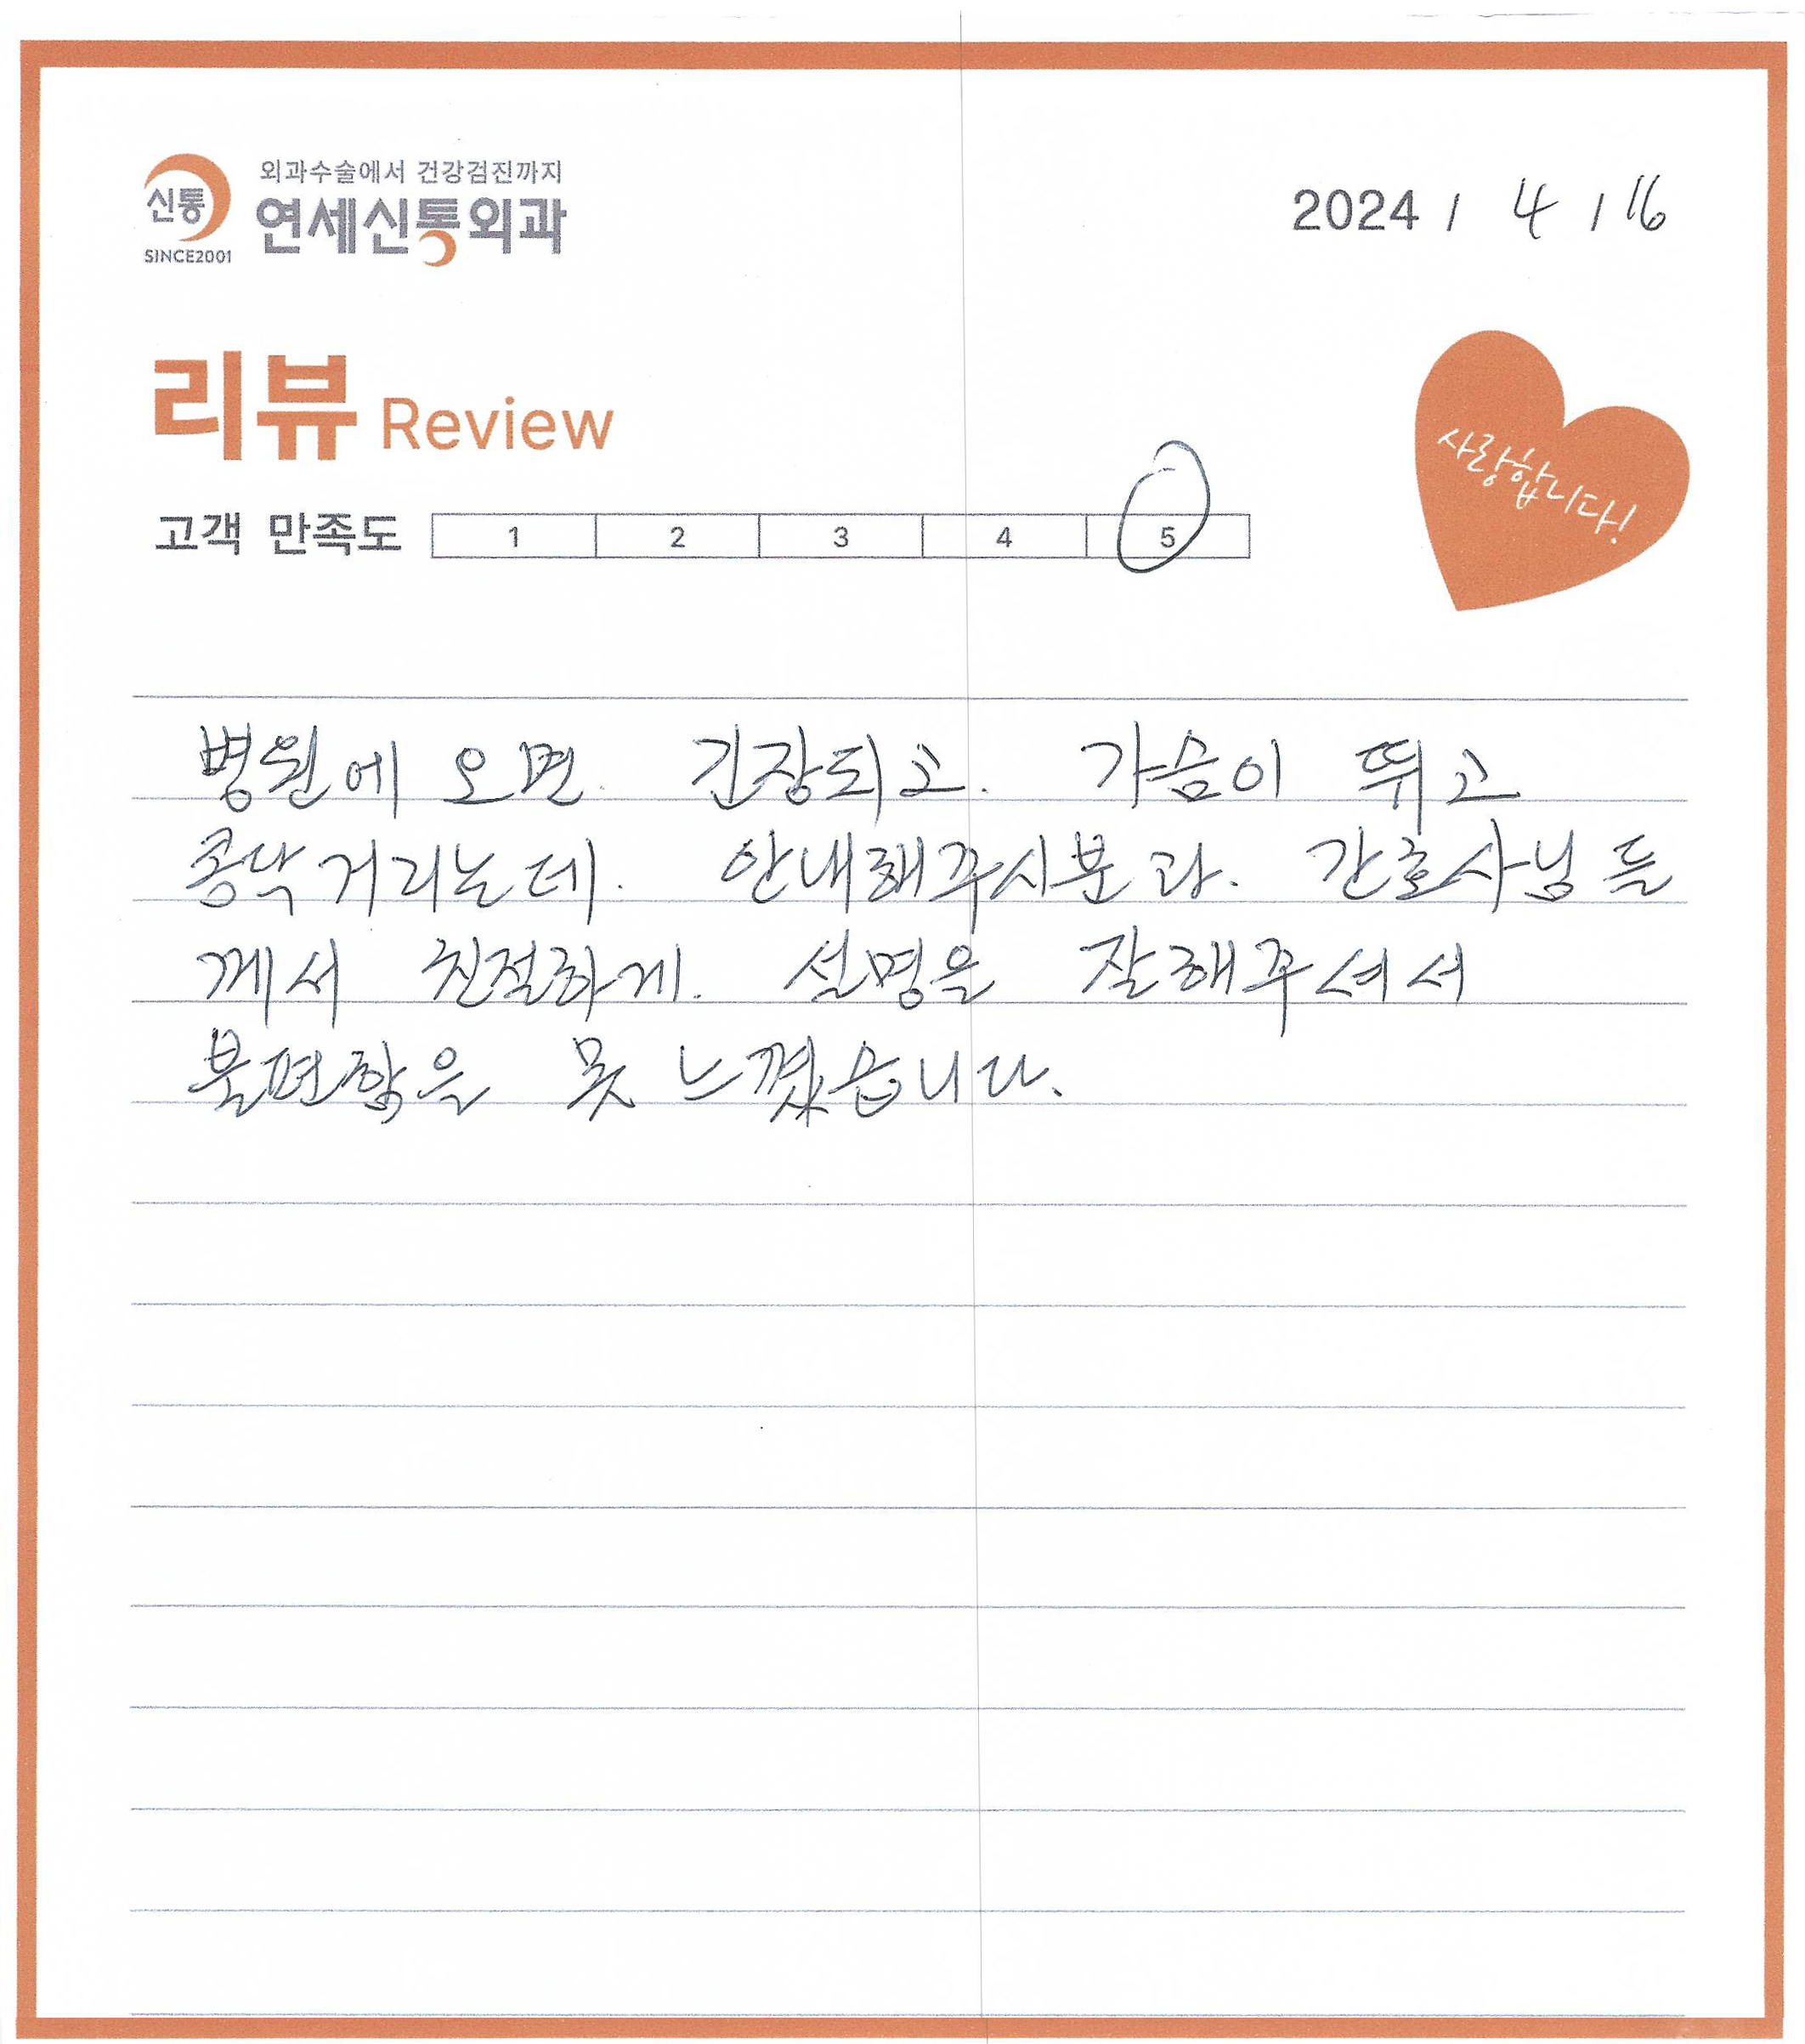 외과수술에서 건강검진까지
신통
연세신통외과
SINCE2001
2024 / 4 / 16
리뷰 Review
사랑합니다!
고객 만족도 1 2 3 4 5
병원에 오면. 긴장되고. 가슴이 뛰고
콩닥거리는데. 안내해주시분과. 간호사님들
께서 친절하게. 설명을 잘해주셔서
불편함을 못 느꼈습니다.